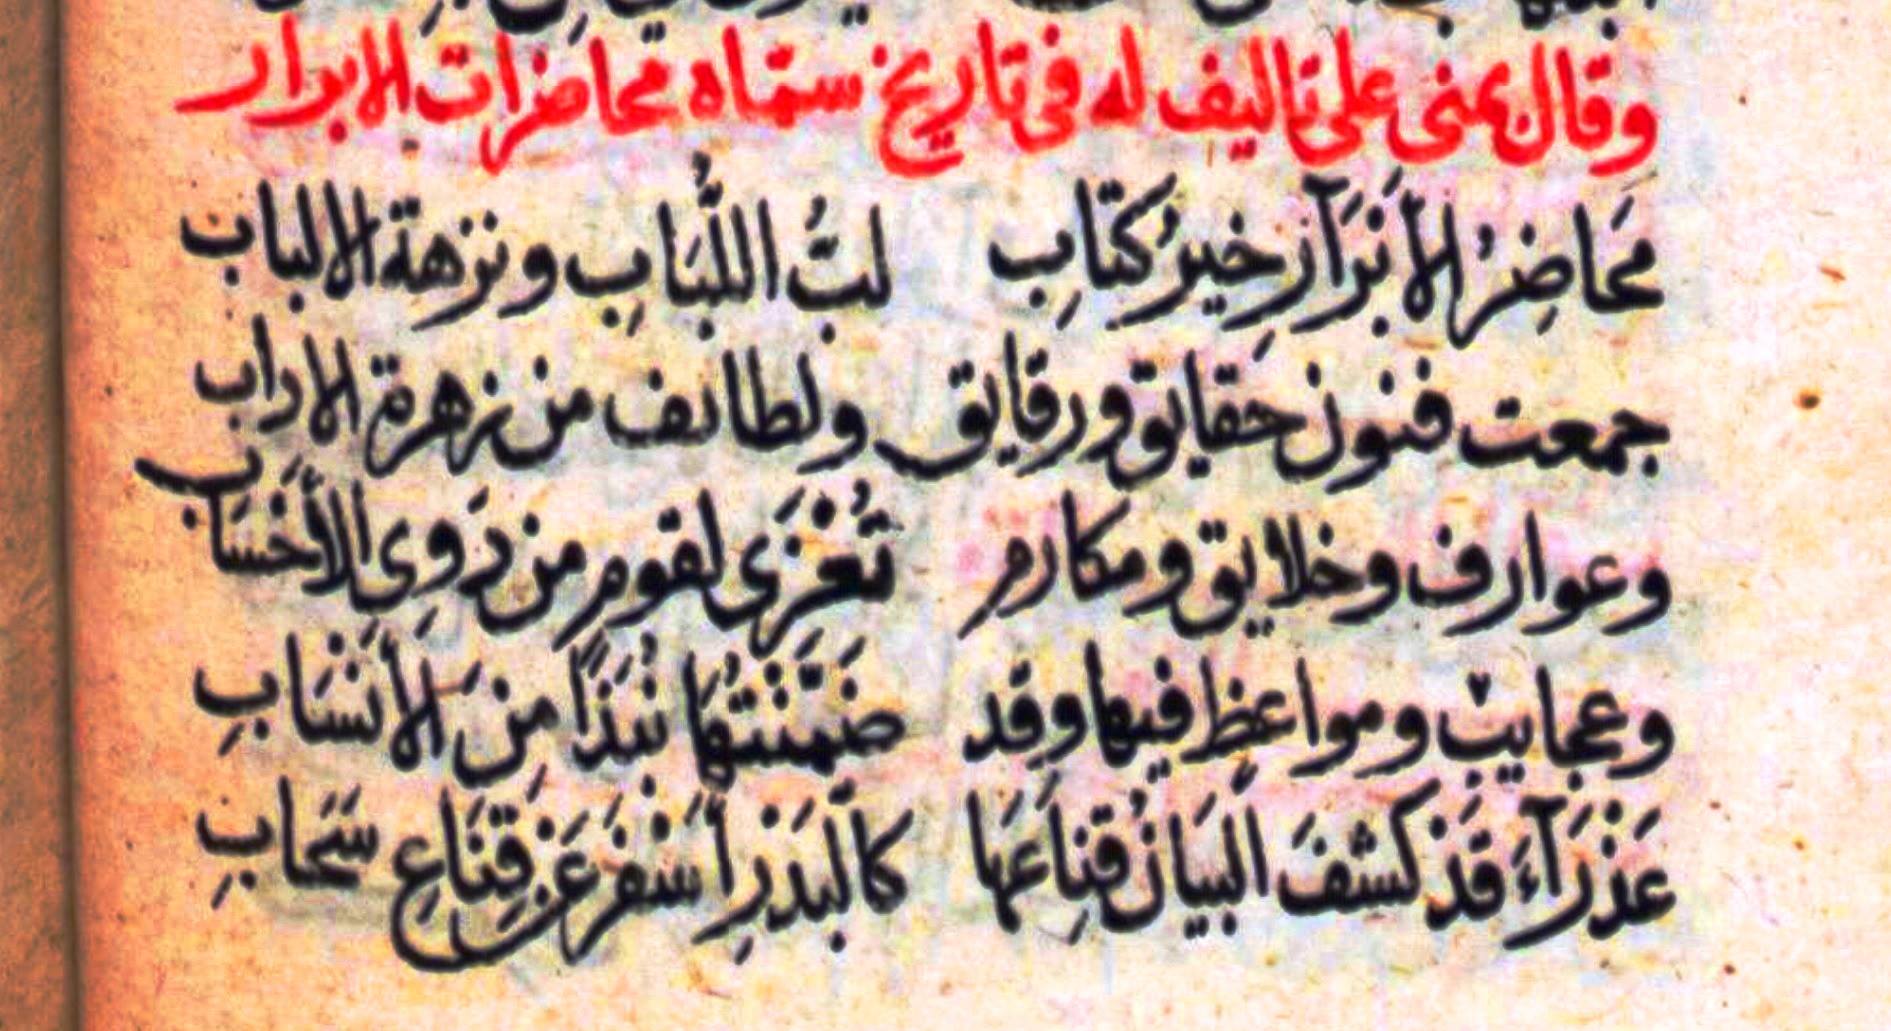 وقال يمنى على تاليف له فى تاريخ سماه محاضرات الابرار
مَحَاضِرُ الأَبْرَآرِ خيرُ كتَابِ لبُّ اللُّبَابِ ونزهة الالباب
جمعت فنون حقايق ورقايق ولطائف من زهرة الاداب
وعوارف وخلايق ومكارم تُعْزَى لقومٍ من ذَوِى الأَحْسَاب
وعجايب ومواعظ فيها وقد ضَمَّنْتُهَا نُبَذًا مِنَ الأَنْسَابِ
عَذْرَآءَ قَدْ كَشَفَ البَيَانُ قِنَاعَهَا كَالبَدْرِ أَسْفَرَ عَنْ قِنَاعِ سَحَابِ